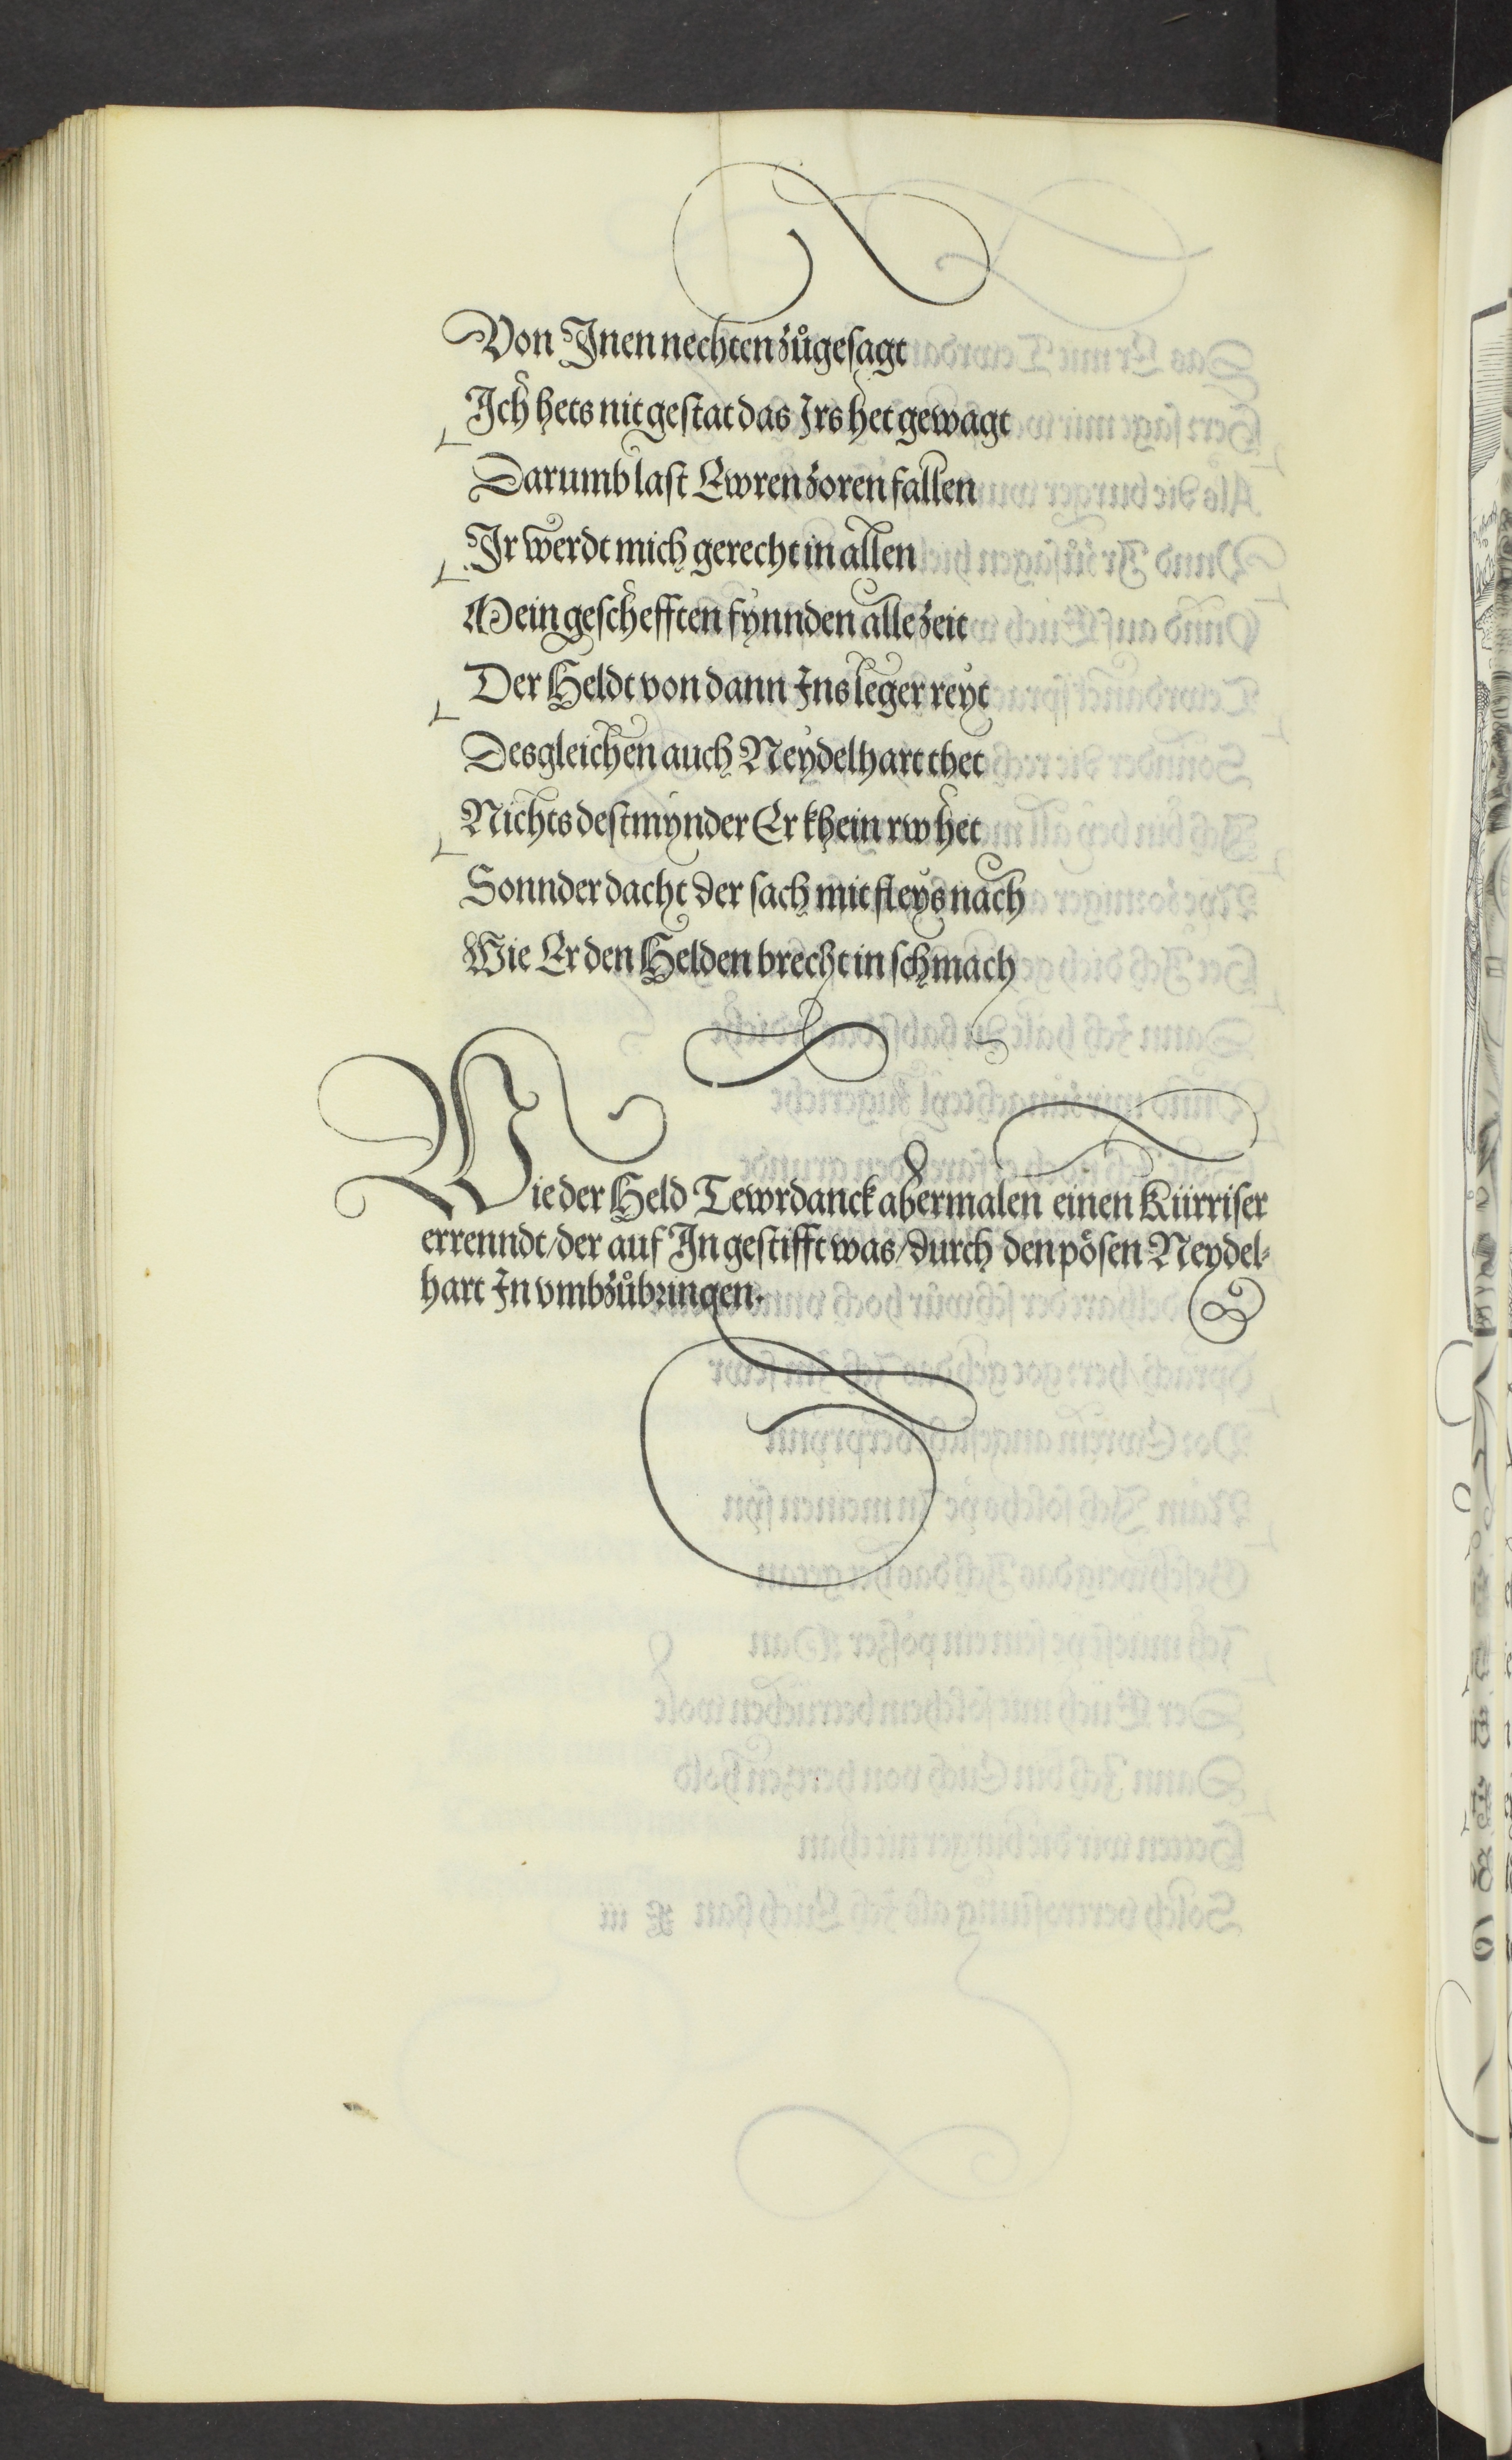 Von Inen nechten zůgesagt
Ich hets nit gestat das Irs het gewagt
Darumb last Ewren zoren fallen
Ir werdt mich gerecht in allen
Mein geschefften fynnden alle zeit
Der Heldt von dann Ins leger reyt
Desgleichen auch Neydelhart thet
Nichts destmynder Er khein rw het
Sonnder dacht der sach mit fleys nach
Wie Er den Helden brecht in schmach
Wie der Held Tewrdanck abermalen einen Kürriser
erenndt/der auf In gestifft was/durch den pösen Neydel-
hart In vmbzůbringen.